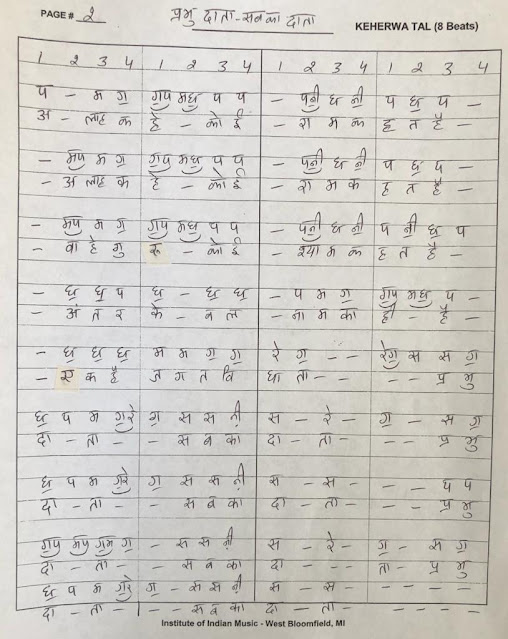 PAGE # 2 प्रभु दाता - सबका दाता KEHERWA TAL (8 Beats)
1 2 3 4 1 2 3 4 1 2 3 4 1 2 3 4
प - म ग॒ ग॒प मध॒ प प - पनी॒ ध नी॒ प ध॒ प -
अ - ल्लाह क हे - को ई - रा म क ह त है -
- मप म ग॒ ग॒प मध॒ प प - पनी॒ ध नी॒ प ध॒ प -
- अ ल्लाह क हे - को ई - रा म क ह त है -
- मप म ग॒ ग॒प मध॒ प प - पनी॒ ध नी॒ प नी॒ ध॒ प
- वा हे गु रू - को ई - श्या म क ह त है -
- ध॒ ध॒ प ध॒ - ध॒ ध॒ - प म ग॒ ग॒प मध॒ प -
- अं त र के - व ल - ना म का ही - है -
- ध॒ ध॒ ध॒ म म ग॒ ग॒ रे ग॒ - - रेग॒ स स ग॒
- ए क है ज ग त वि धा ता - - - - प्र भु
ध॒ प म ग॒रे ग॒ स स नी॒ स - रे - ग॒ - स ग॒
दा - ता - - स ब का दा - ता - - - प्र भु
ध॒ प म ग॒रे ग॒ स स नी॒ स - स - - - ध प
दा - ता - - स ब का दा - ता - - - प्र भु
ग॒प मप ग॒म ग॒ - स स नी॒ स - रे - ग॒ - स ग॒
दा - ता - - स ब का दा - - - ता - प्र भु
ध॒ प म ग॒रे ग॒ - स स नी॒ स - स - - - - -
दा - ता - - स ब का दा - ता - - - - -
Institute of Indian Music - West Bloomfield, MI